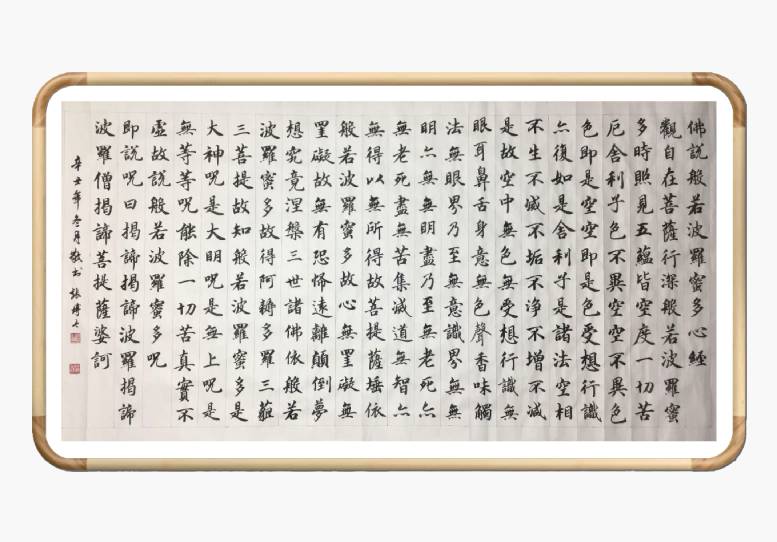 佛說般若波羅蜜多心經
觀自在菩薩行深般若波羅蜜
多時照見五蘊皆空度一切苦
厄舍利子色不異空空不異色
色即是空空即是色受想行識
亦復如是舍利子是諸法空相
不生不滅不垢不淨不增不減
是故空中無色無受想行識無
眼耳鼻舌身意無色聲香味觸
法無眼界乃至無意識界無無
明亦無無明盡乃至無老死亦
無老死盡無苦集滅道無智亦
無得以無所得故菩提薩埵依
般若波羅蜜多故心無罣礙無
罣礙故無有恐怖遠離顛倒夢
想究竟涅槃三世諸佛依般若
波羅蜜多故得阿耨多羅三藐
三菩提故知般若波羅蜜多是
大神呪是大明呪是無上呪是
無等等呪能除一切苦真實不
虛故說般若波羅蜜多呪
即說呪曰揭諦揭諦波羅揭諦
波羅僧揭諦菩提薩婆訶
辛丑年冬月敬書張